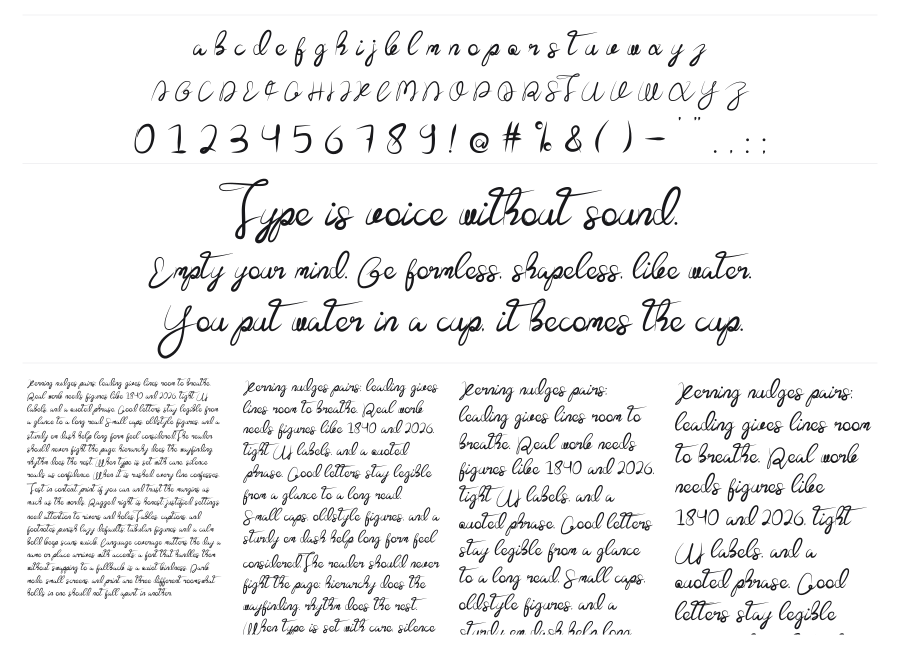 a b c d e f g h i j k l m n o p q r s t u v w x y z
A B C D E F G H I J K L M N O P Q R S T U V W X Y Z
0 1 2 3 4 5 6 7 8 9 ! @ # % & ( ) - ' " . , : ;
Type is voice without sound.
Empty your mind. Be formless, shapeless, like water.
You put water in a cup, it becomes the cup.
Kerning nudges pairs; leading gives lines room to breathe.
Real work needs figures like 1840 and 2026, tight UI
labels, and a quoted phrase. Good letters stay legible from
a glance to a long read. Small caps, oldstyle figures, and a
sturdy em dash help long form feel considered. The reader
should never fight the page; hierarchy does the wayfinding,
rhythm does the rest. When type is set with care, silence
reads as confidence. When it is rushed, every line confesses.
Test in context, print if you can, and trust the margins as
much as the words. Ragged right is honest; justified settings
need attention to rivers and holes. Tables, captions, and
footnotes punish lazy defaults; tabular figures and a calm
bold keep scans quick. Language coverage matters the day a
name or place arrives with accents; a font that handles them
without swapping to a fallback is a quiet kindness. Dark
mode, small screens, and print are three different rooms; what
holds in one should not fall apart in another.
Kerning nudges pairs; leading gives
lines room to breathe. Real work
needs figures like 1840 and 2026,
tight UI labels, and a quoted
phrase. Good letters stay legible
from a glance to a long read.
Small caps, oldstyle figures, and a
sturdy em dash help long form feel
considered. The reader should never
fight the page; hierarchy does the
wayfinding, rhythm does the rest.
When type is set with care, silence
Kerning nudges pairs;
leading gives lines room to
breathe. Real work needs
figures like 1840 and 2026,
tight UI labels, and a
quoted phrase. Good letters
stay legible from a glance
to a long read. Small caps,
oldstyle figures, and a
sturdy em dash help long
Kerning nudges pairs;
leading gives lines room
to breathe. Real work
needs figures like
1840 and 2026, tight
UI labels, and a
quoted phrase. Good
letters stay legible